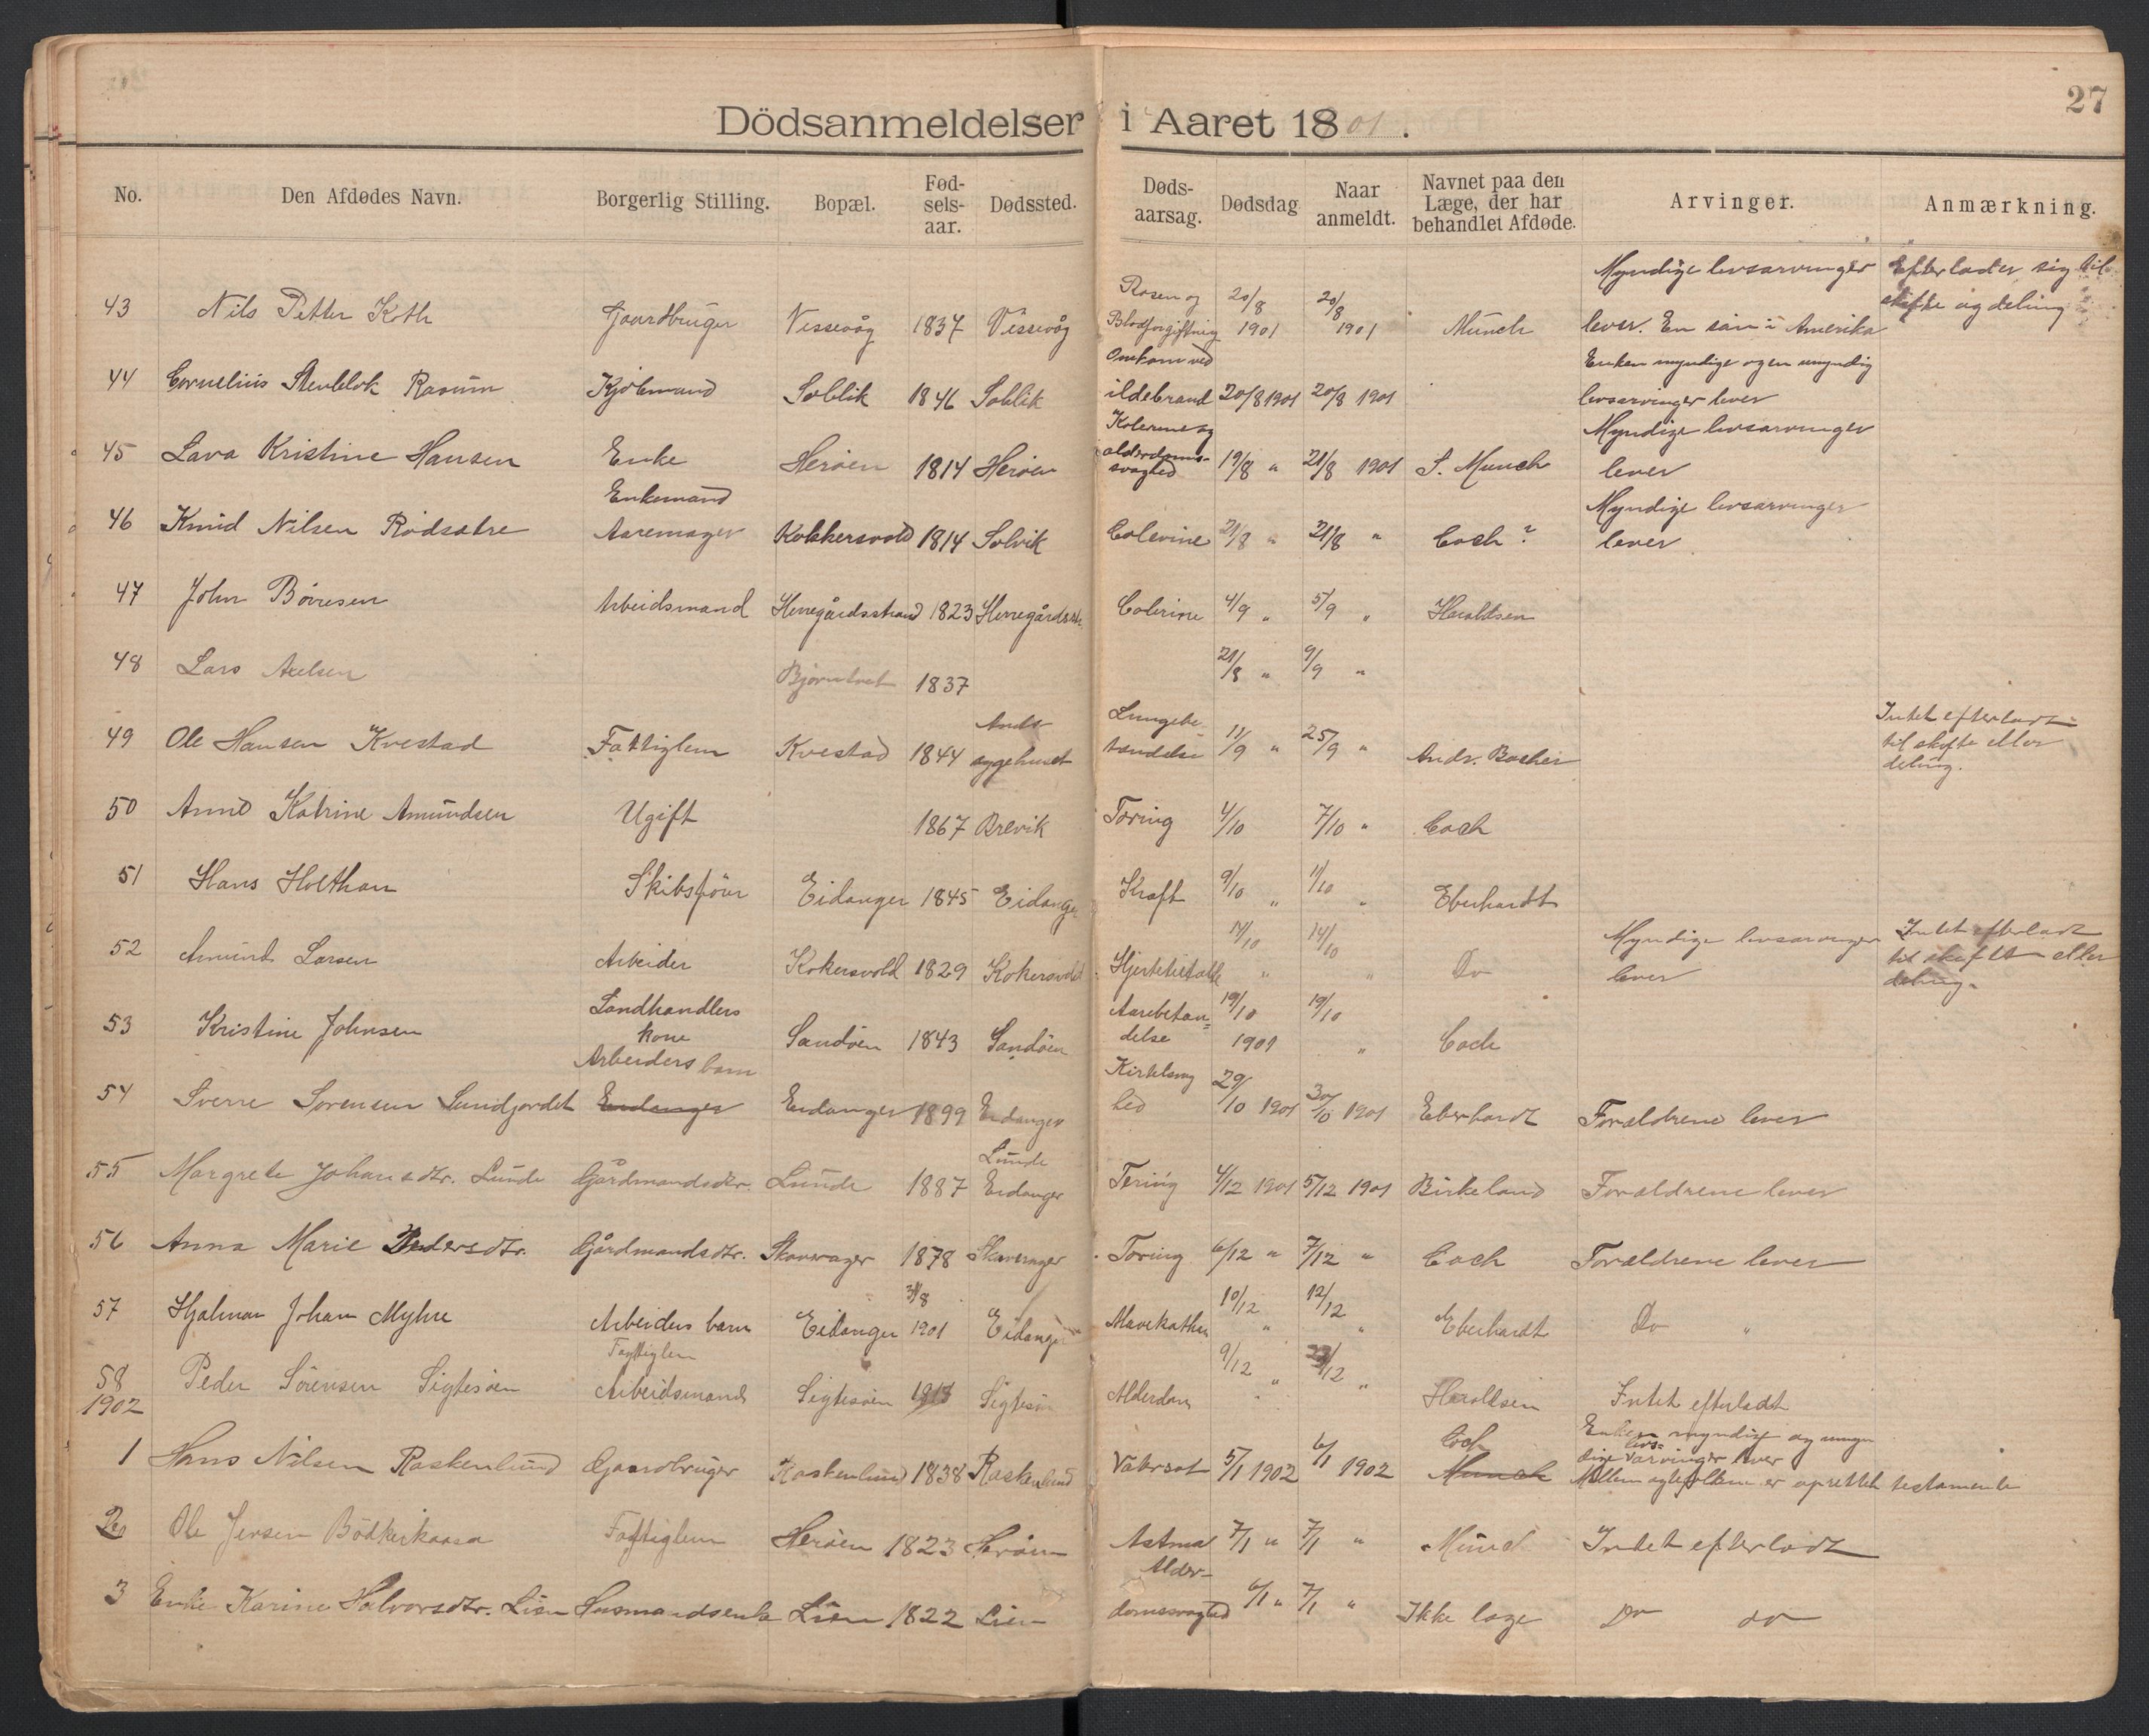 27
Dödsanmeldelser i Aaret 1801.
No. Den Afdødes Navn. Borgerlig Stilling. Bopæl. Fødselsaar. Dødssted. Dødsaarsag. Dødsdag Naar anmeldt. Navnet paa den Læge, der har behandlet Afdøde. Arvinger. Anmærkning.
43 Nils Petter Gaardbruger Vissevåg 1837 Vissevåg Rosen og Blodforgiftning 20/8 1901 20/8 1901 Münch Myndige livsarvinger lever. En sön i Amerika Efterlader sig til skifte og deling
44 Cornelius Rasum Kjöbmand Soblik 1846 Soblik Omkom ved ildebrand 20/8 1901 20/8 1901 Enken myndige og en umyndig livsarvinger lever
45 Lava Kristine Hansen Enke Heröen 1814 Heröen Kolerine og alderdomssvaghed 19/8 " 21/8 1901 S. Munch Myndige livsarvinger lever
46 Knud Nilsen Rödsætre Enkemand Aaremager Kokkersvold 1814 Solvik Colerine 21/8 " 21/8 " Coch ? Myndige livsarvinger lever
47 John Börresen Arbeidsmand Herregårdsstrand 1823 Herregårdsstr. Colerine 4/9 " 5/9 " Haraldsen
48 Lars Axelsen Bjørntvet 1837 21/8 " 9/9 "
49 Ole Hansen Kvestad Fattiglem Kvestad 1844 Amts sygehuset Lungebetændelse 11/9 " 25/9 " Andr. Backer Intet efterladt til skifte eller deling.
50 Anne Katrine Amundsen Ugift 1867 Brevik Tæring 4/10 7/10 " Coch
51 Hans Holthan Skibsförer Eidanger 1845 Eidanger Kræft 9/10 " 11/10 " Eberhardt
52 Amund Larsen Arbeider Kokersvold 1829 Kokersvold Hjertetilfælle 14/10 " 14/10 " Do Myndige livsarvinger lever Intet efterladt til skifte eller deling.
53 Kristine Johnsen Landhandlers kone Sandöen 1843 Sandöen Aarebetændelse 19/10 1901 19/10 " Coch
54 Sverre Sørensen Sundjordet Arbeiders barn Eidanger Eidanger 1899 Eidanger Kirtelsvaghed 29/10 1901 30/10 1901 Eberhardt Forældrene lever
55 Margrete Johansdtr. Lunde Gårdmandsdtr. Lunde 1887 Lunde Eidanger Tæring 4/12 1901 5/12 1901 Birkeland Forældrene lever
56 Anna Marie Pedersdtr. Gårdmandsdtr. Skavrager 1878 Skavrager Tæring 6/12 " 7/12 " Coch Forældrene lever
57 Hjalmar Johan Myhre Arbeiders barn Eidanger 31/8 1901 Eidanger Mavekathar 10/12 " 12/12 " Eberhardt Do "
58 Peder Sörensen Sigtesöen Fattiglem Arbeidsmand Sigtesöen 1818 Sigtesöen Alderdom 9/12 " 23/12 " Haraldsen Intet efterladt
1902
1 Hans Nilsen Raskenlund Gaardbruger Raskenlund 1838 Raskenlund Vatersot 5/1 1902 6/1 1902 Coch Munch Enken myndige og umyndige livsarvinger lever Mellem ægtefolkene er oprettet testamente
2 Ole Jensen Bödkerkaasa Fattiglem Heröen 1823 Heröen Astma 7/1 " 7/1 " Münch Intet efterladt
3 Enke Karine Halvorsdtr. Lien Husmandsenke Lien 1822 Lien Alderdomssvaghed 6/1 " 7/1 " Ikke læge Do do